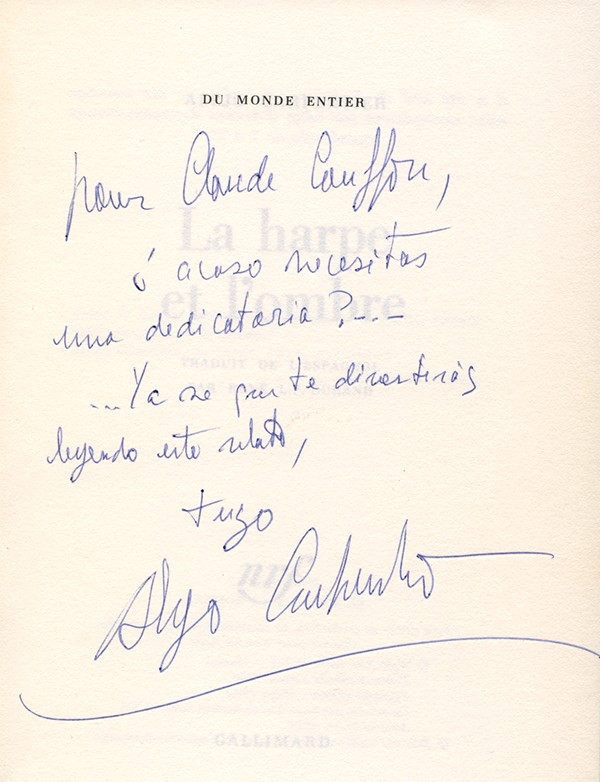 DU MONDE ENTIER
pour Claude Couffon,
ó acaso necesitas
una dedicatoria?---
...Ya se que te divertirás
leyendo este relato,
tuyo
Alejo Carpentier
La harpe
et l'ombre
TRADUIT DE L'ESPAGNOL
PAR DURAND
nrf
GALLIMARD